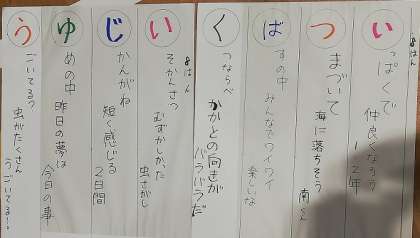 8はん
い
っぱくで
仲良くなろう
1、2年
つ
まづいて
海に落ちそう
南くん
ば
すの中
みんなでワイワイ
楽しいな
く
つならべ
かかとの向きが
バラバラだ
8はん
い
そかんさつ
むずかしかった
虫さがし
じ
かんがね
短く感じる
2日間
ゆ
めの中
昨日の夢は
今日の事
う
ごいてるっ
虫がたくさん
うごいてる!!